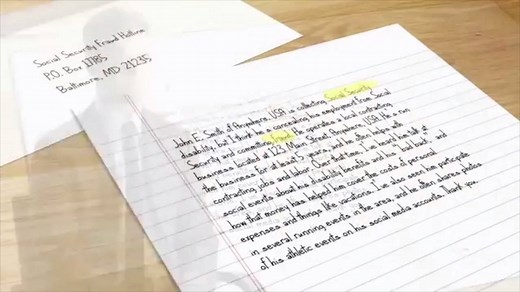 Social Security Fraud Hotline
P.O. Box 17785
Baltimore, MD 21235
John E. Smith of Anywhere, USA is collecting Social Security
disability, but I think he is concealing his employment from Social
Security and committing fraud. He operates a local contracting
business located at 123 Main Street, Anywhere, USA. He's run
the business for at least 5 years, and he often helps with
contracting jobs and labor. Over that time, I've heard him talk at
social events about his disability benefits and his "bad back," and
how that money has helped him cover the costs of personal
expenses and things like vacations. I've also seen him participate
in several running events in the area, and he often shares photos
of his athletic events on his social media accounts. Thank you.